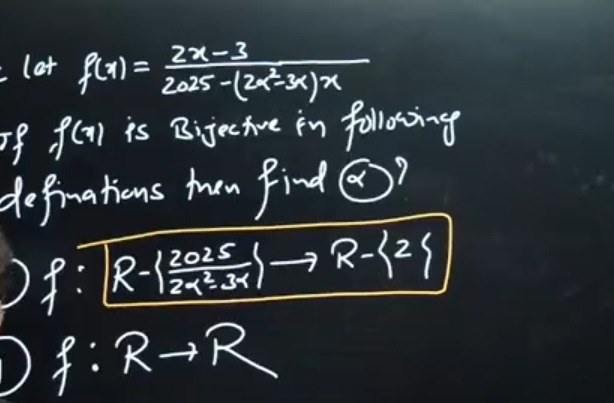 let f(x) = 2x-3 / 2025-(2α²-3α)x
If f(x) is Bijective in following
definations then find α ?
) f : R-{2025/2α²-3α} → R-{2}
) f : R → R